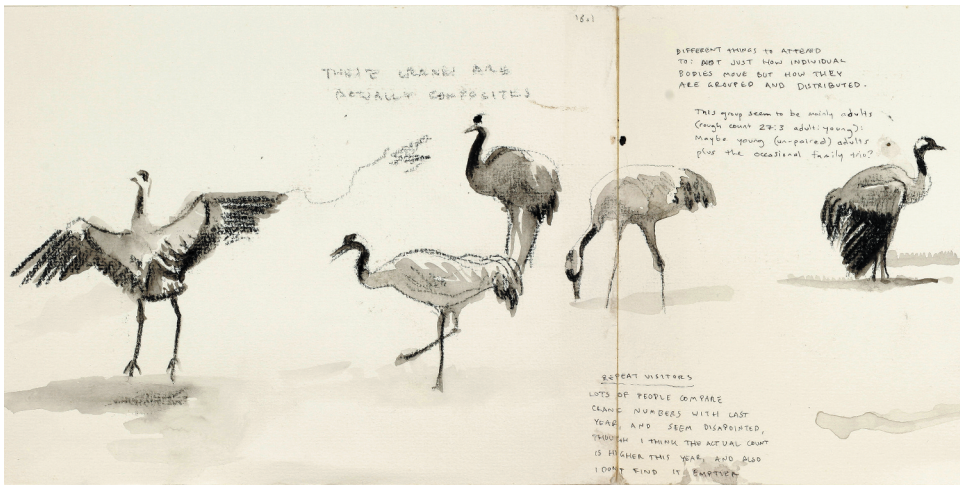 1601
THESE CRANES ARE
ACTUALLY COMPOSITES
DIFFERENT THINGS TO ATTEND
TO: NOT JUST HOW INDIVIDUAL
BODIES MOVE BUT HOW THEY
ARE GROUPED AND DISTRIBUTED.
This group seem to be mainly adults
(rough count 27:3 adult:young):
Maybe young (un-paired) adults
plus the occasional family trio?
REPEAT VISITORS
LOTS OF PEOPLE COMPARE
CRANE NUMBERS WITH LAST
YEAR, AND SEEM DISAPOINTED,
THOUGH I THINK THE ACTUAL COUNT
IS HIGHER THIS YEAR, AND ALSO
I DON'T FIND IT EMPTIER